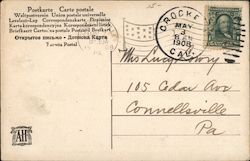 Postkarte Carte postale
Weltpostverein Union postale universelle
Levelező-Lap Correspondenzkarte Dopisnice
Karta korespondencyjna Korespondenční lístek
Briefkaart Cartolina postale Postcard Brefkort
Открытое письмо - Дописна Карта
Tarjeta Postal
CROCKE
MA
1908
CAL
Miss Lucy Lowry
105 Cedar Ave
Connellsville
Pa
AH